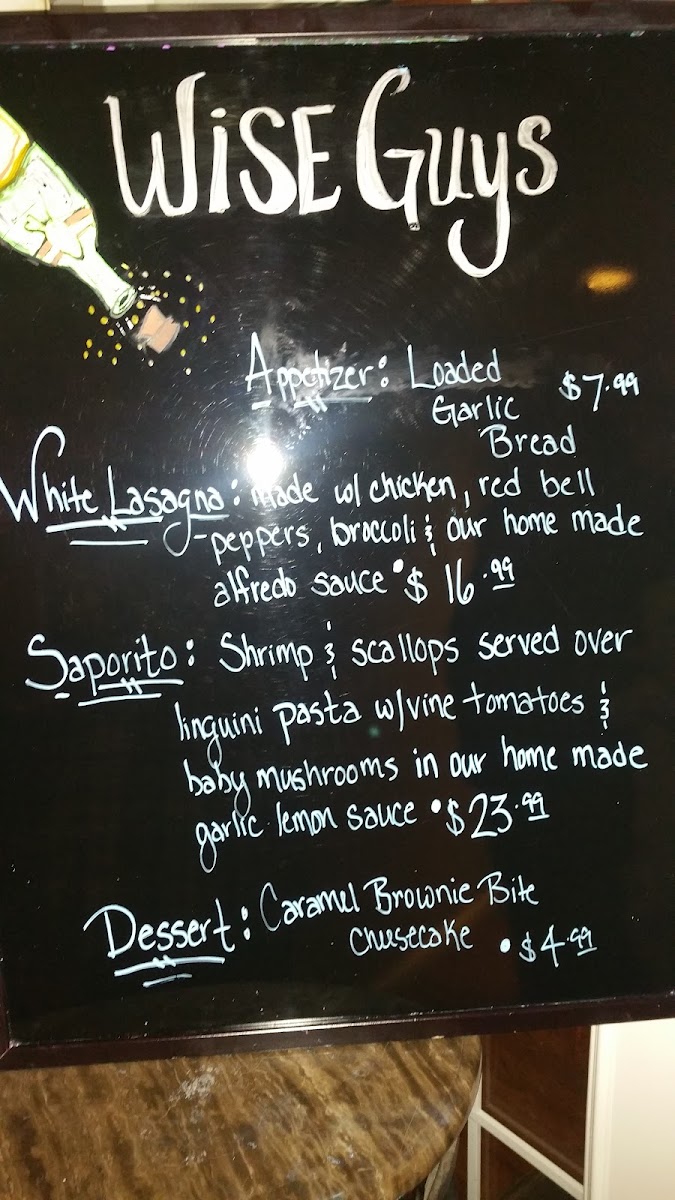 WISE Guys
Appetizer: Loaded
Garlic $7.99
Bread
White Lasagna: made w/ chicken, red bell
peppers, broccoli & our home made
alfredo sauce • $16.99
Saporito: Shrimp & scallops served over
linguini pasta w/vine tomatoes &
baby mushrooms in our home made
garlic lemon sauce • $23.99
Dessert: Caramel Brownie Bite
Cheesecake • $4.99